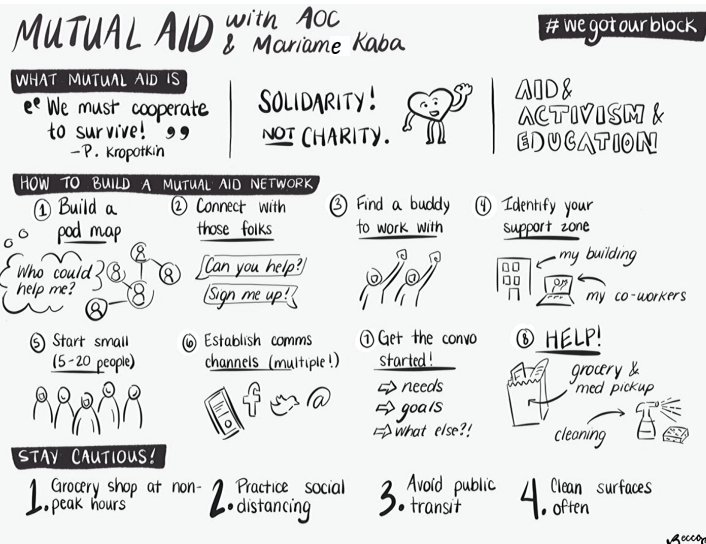 MUTUAL AID with AOC
& Mariame Kaba
#wegotourblock
WHAT MUTUAL AID IS
"We must cooperate
to survive!"
-P. Kropotkin
SOLIDARITY!
NOT CHARITY.
AID &
ACTIVISM &
EDUCATION!
HOW TO BUILD A MUTUAL AID NETWORK
① Build a
pod map
Who could
help me?
② Connect with
those folks
Can you help?
Sign me up!
③ Find a buddy
to work with
④ Identify your
support zone
my building
my co-workers
⑤ Start small
(5-20 people)
⑥ Establish comms
channels (multiple!)
f
@
⑦ Get the convo
started!
⇨ needs
⇨ goals
⇨ what else?!
⑧ HELP!
grocery &
med pickup
cleaning
STAY CAUTIOUS!
1. Grocery shop at non-
peak hours
2. Practice social
distancing
3. Avoid public
transit
4. Clean surfaces
often